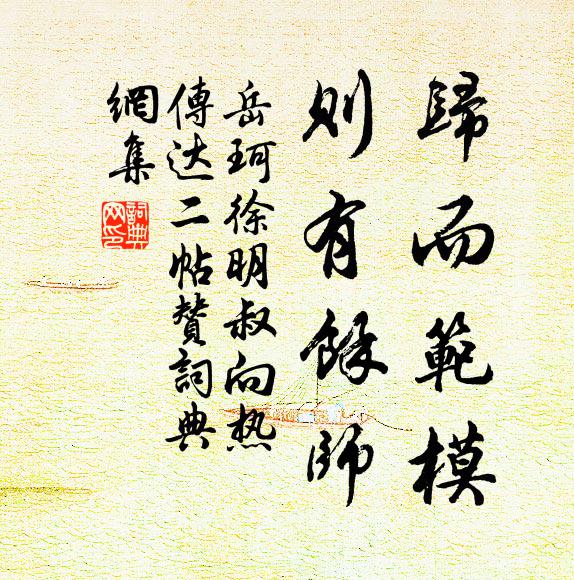 歸而範模
則有餘師
岳珂徐明叔向热
傳达二帖贊詞典
網集
詞典網印